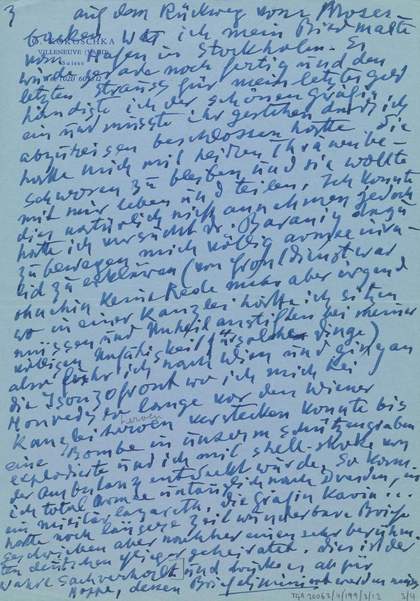 3 auf dem Rückweg vom Blosen
O. KOKOSCHKA
VILLENEUVE
Suisse
war ich mein Bild malte
vom Hafen in Stockholm. Es
wurde gerade noch fertig und den
letzten Strauss für mein letztes geld
händigte ich der schönen gräfin
ein und musste ihr gestehen dass ich
abzureisen beschlossen hatte. die
hatte mich mit heißen Thränen be-
schworen zu bleiben und sie wollte
mit mir leben und teilen. Ich konnte
dies natürlich nicht annehmen jedoch
hatte ich versucht dr. Barany dazu
zu bewegen mich völlig armee inva-
lid zu erklären (von frontdienst war
ohnehin keine Rede mehr aber irgend
wo in einer Kanzlei hätte ich sitzen
müssen und Unheil anstiften bei meiner
völligen Unfähigkeit für solche dinge)
also fuhr ich nach Wien und ging an
die Isonzofront wo ich mich bei
Honveds so lange vor den Wiener
Kanzleiheroen verstecken konnte bis
heroen
eine Bombe in unserm schützengraben
explodierte und ich mit shell-shock von
der Ambulanz entdeckt wurde. So kam
ich total armee untauglich nach Dresden, in
ein militärlazareth. die gräfin Karin ...
hatte noch längere Zeit wunderbare Briefe
geschrieben aber nachher einen sehr berühm-
ten deutschen flieger geheiratet. dies ist der
wahre Sachverhalt und drücke es ab für
Hoppe, dessen Brief eliminiert werden muss
TGA 20063/4/199/3/12
3/4